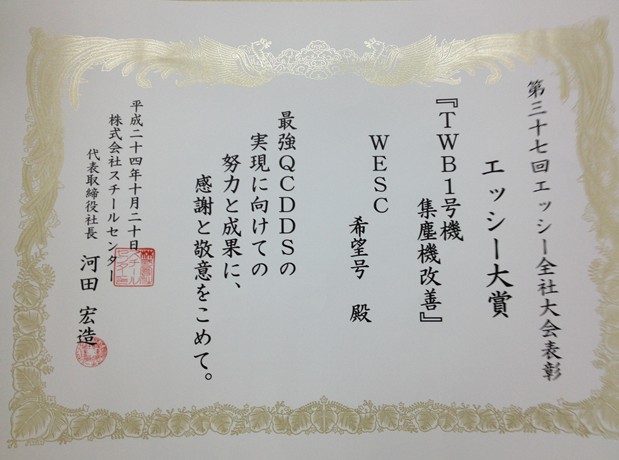 第三十七回エッシー全社大会表彰
エッシー大賞
『TWB1号機
集塵機改善』
WESC
希望号 殿
最強QCDDSの
実現に向けての
努力と成果に、
感謝と敬意をこめて。
平成二十四年十月二十日
株式会社スチールセンター
代表取締役社長 河田 宏造